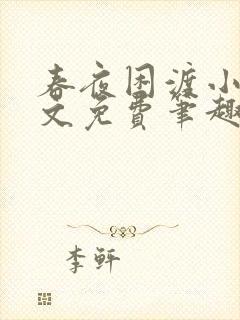 春夜困渡小
文免费笔趣
李虷